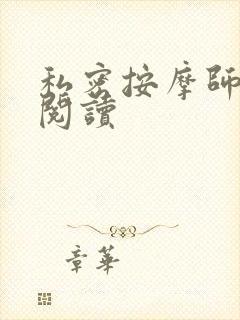 私密按摩師
閱讀
章華